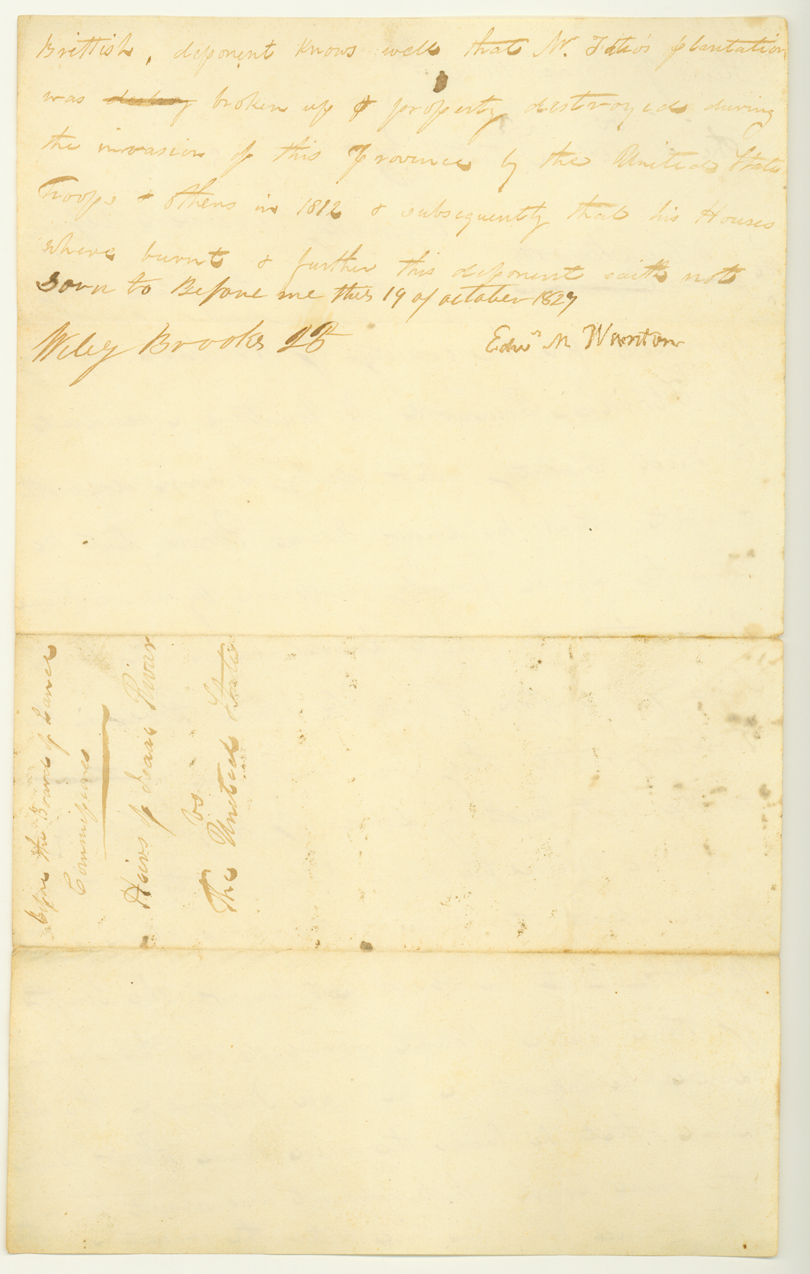 Brittish, deponent knows well that Mr. Tate's plantation
was broken up & property destroyed during
the invasion of this Province by the United States
Troops & others in 1812 & subsequently that his Houses
where burnt & further this deponent saith not
Sorn to Before me this 19 of october 1827
Wiley Brooks JP
Edwd M Wanton
Before the Board of Land
Commissioners
Heirs of Isaac
vs
The United States